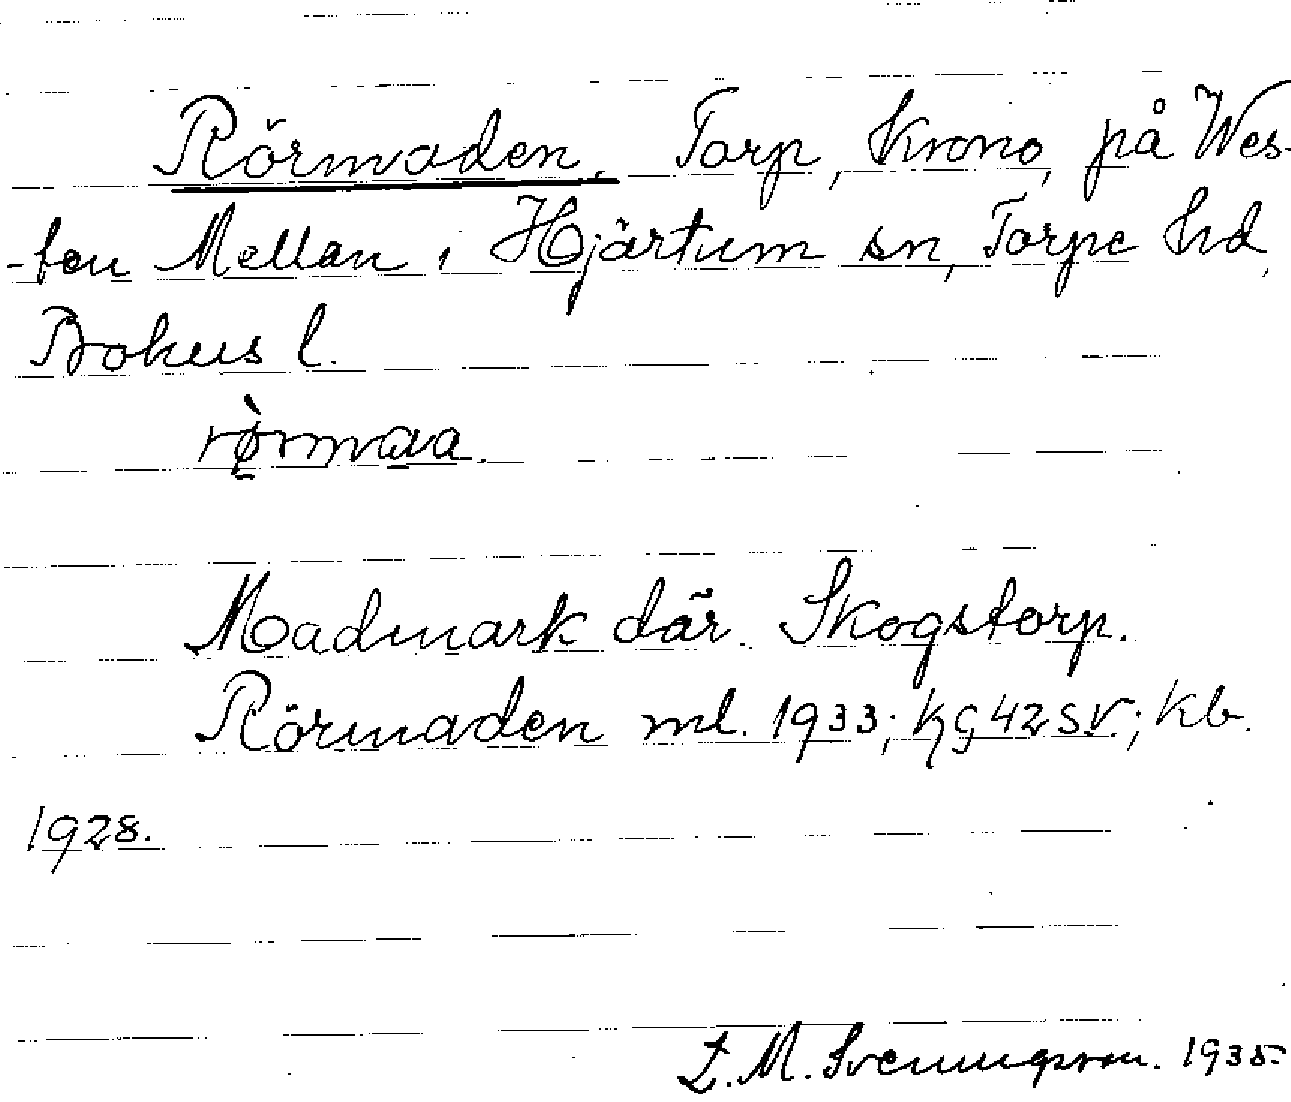 Rörmaden. Torp, Krono, på Wes-
-ten Mellan, Hjärtum sn, Torpe hd,
Bohus l.
rø̀rmaa.
Madmark där. Skogstorp.
Rörmaden ml. 1933; KG 42 SV.; kb.
1928.
L. M. Svenungsson. 1935